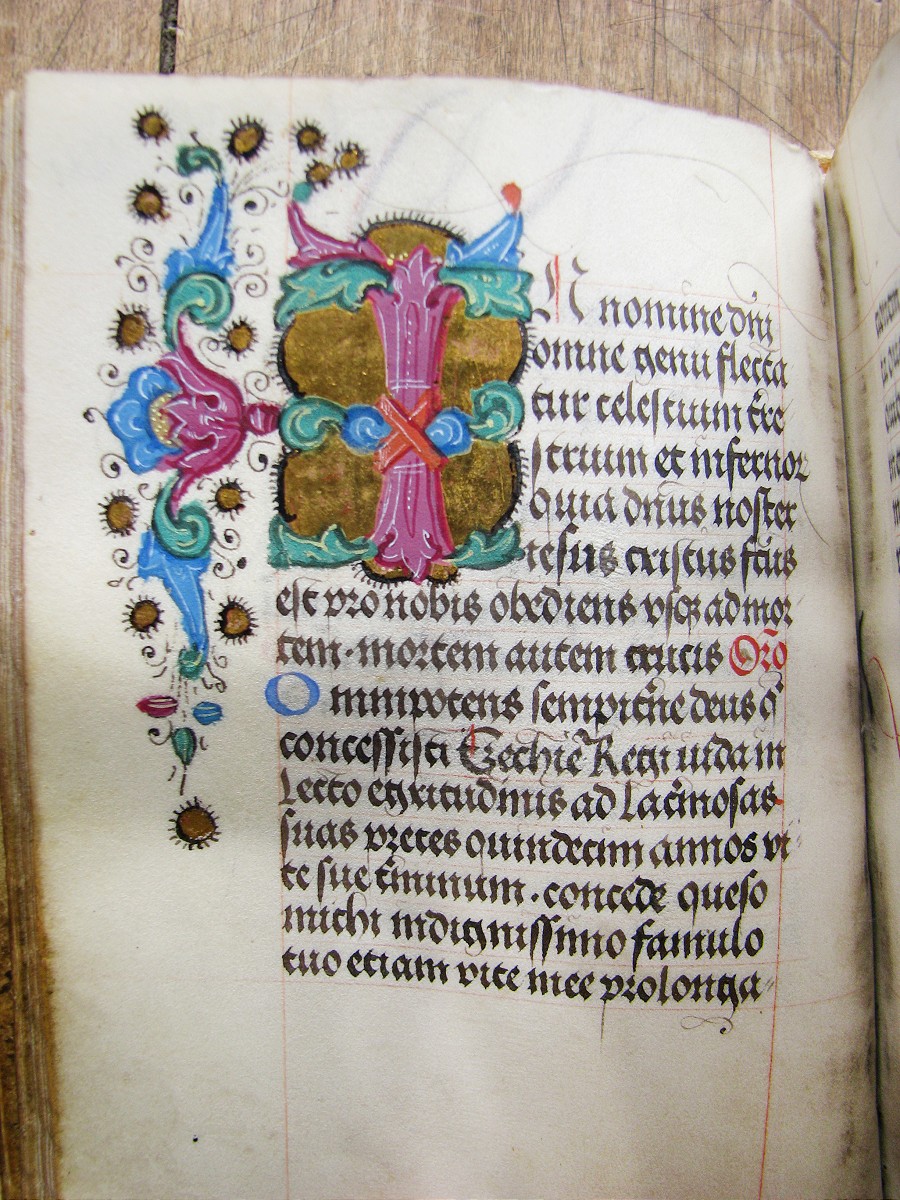 IN nomine dni
omne genu flecta
tur celestium tre
strium et infernor
Quia dnus noster
iesus cristus fcus
est pro nobis obediens vsq ad mor
tem · mortem autem crucis Oro
Omnipotens sempitne deus q
concessisti Ezechie Regi iuda in
Lecto egritudinis ad Lacrimosas
suas preces quindecim annos vi
te sue tminum · concede queso
michi indignissimo famulo
tuo etiam vite mee prolonga